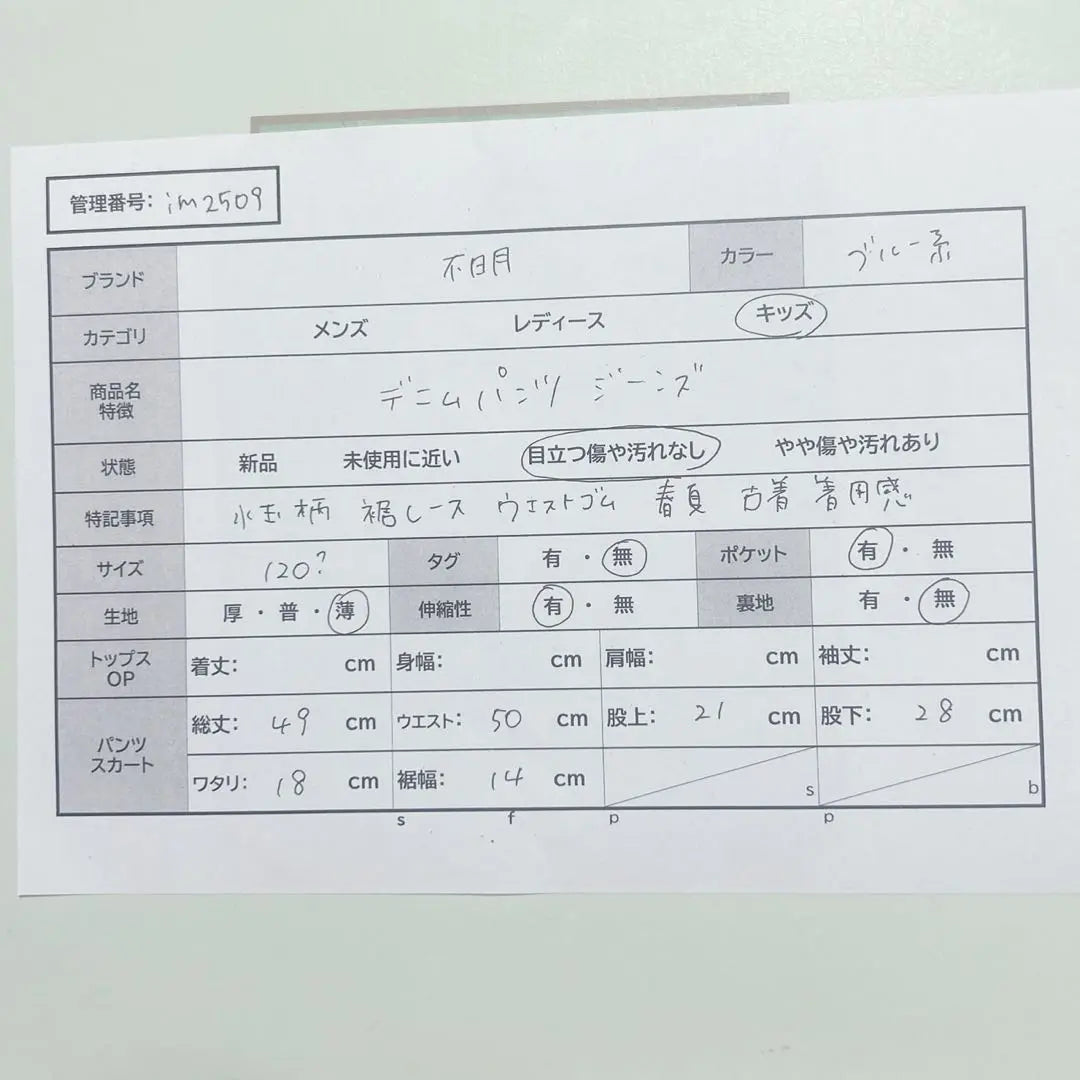 管理番号: im2509
ブランド 不明 カラー ブルー系
カテゴリ メンズ レディース キッズ
商品名
特徴 デニムパンツ ジーンズ
状態 新品 未使用に近い 目立つ傷や汚れなし やや傷や汚れあり
特記事項 水玉柄 裾レース ウエストゴム 春夏 古着 着用感
サイズ 120? タグ 有・無 ポケット 有・無
生地 厚・普・薄 伸縮性 有・無 裏地 有・無
トップス
OP 着丈: cm 身幅: cm 肩幅: cm 袖丈: cm
パンツ
スカート 総丈: 49 cm ウエスト: 50 cm 股上: 21 cm 股下: 28 cm
ワタリ: 18 cm 裾幅: 14 cm s b
s f p p